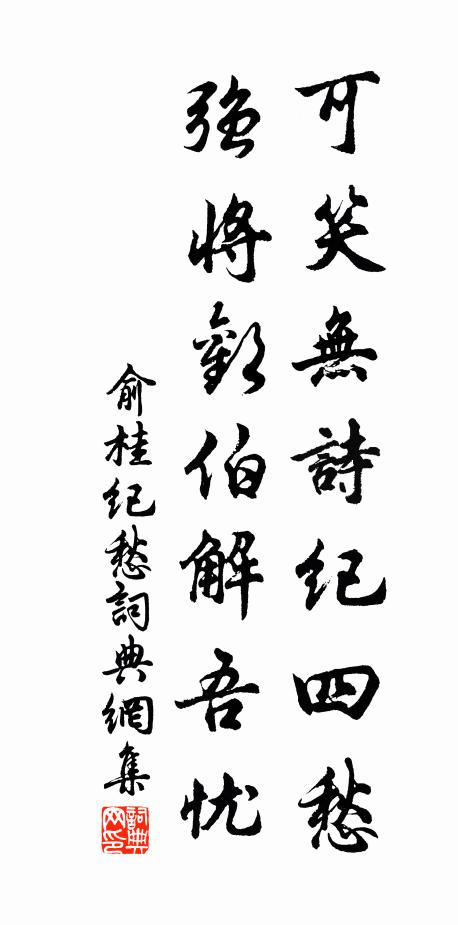 可笑無詩紀四愁
強將歡伯解吾忧
俞桂纪愁詞典網集
詞典网印